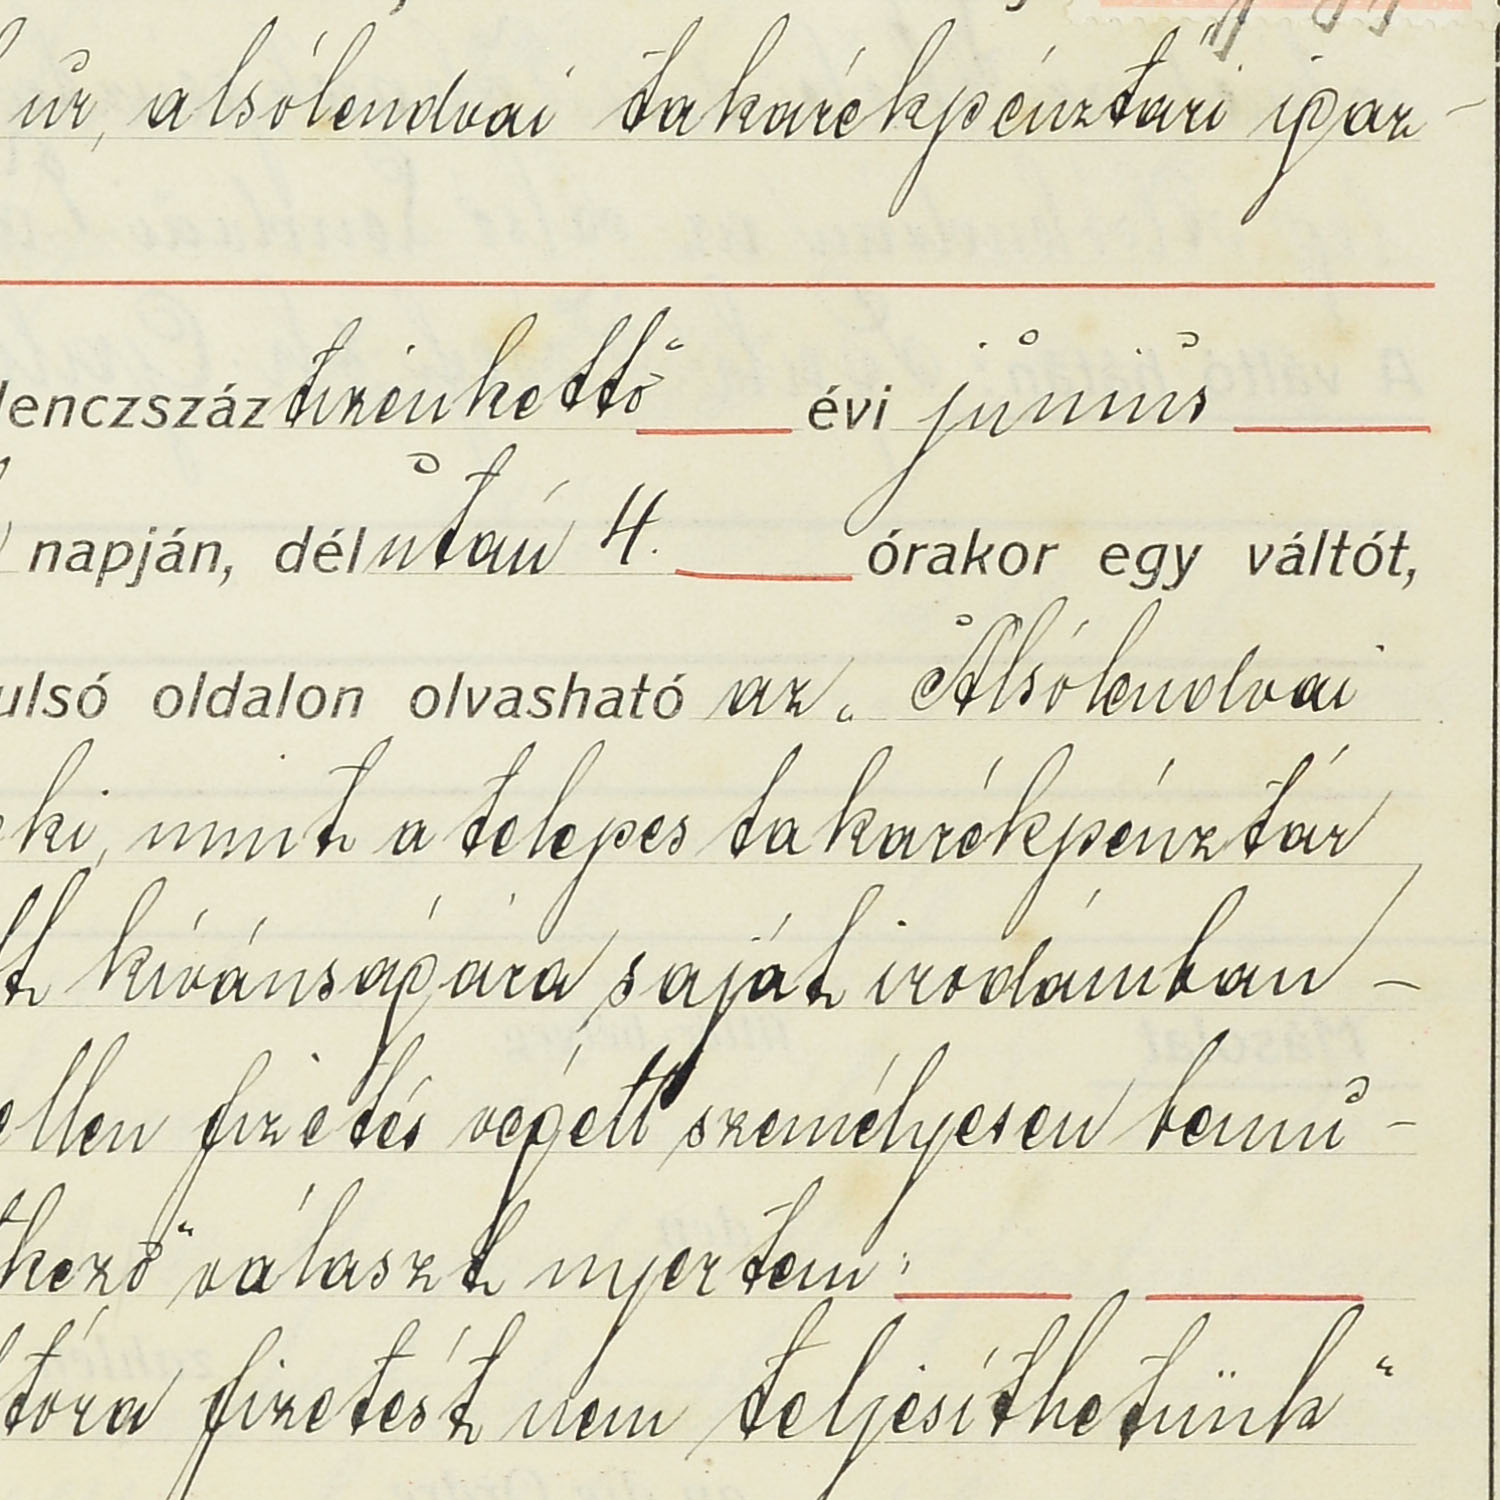 úr, alsólendvai takarékpénztári igaz-
lenczszáz tizenkettő évi június
napján, délután 4. órakor egy váltót,
ulsó oldalon olvasható az „Alsólendvai
ki, mint a telepes takarékpénztár
t kívánságára saját irodámban –
ellen fizetés végett személyesen bemu-
kező" választ nyertem:
tóra fizetést nem teljesíthetünk"